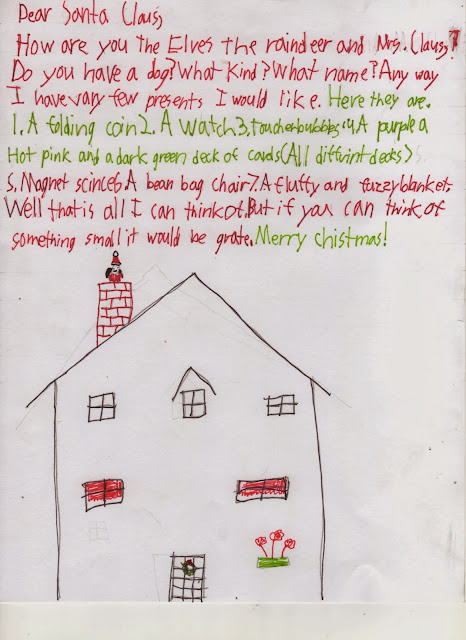 Dear Santa Claus,
How are you The Elves the raindeer and Mrs. Clauss?
Do you have a dog? What Kind? What name? Any way
I have vary few presents I would like. Here they are.
1. A folding coin 2. A watch 3. toucherbubbles 4. A purple a
Hot pink and a dark green deck of cards (All diffrint decks)
5. Magnet scince 6. A bean bag chair 7. A fluffy and fuzzy blanket.
Well that is all I can think of. But if you can think of
something small it would be grate. Merry chistmas!